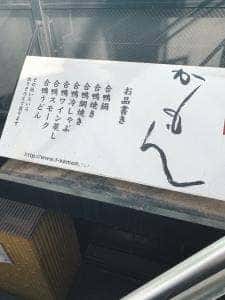 かもん
お品書き
合鴨鍋
合鴨焼き
合鴨鍋焼き
合鴨冷しゃぶ
合鴨ワイン蒸し
合鴨スモーク
合鴨うどん
http://www.r-kamon.